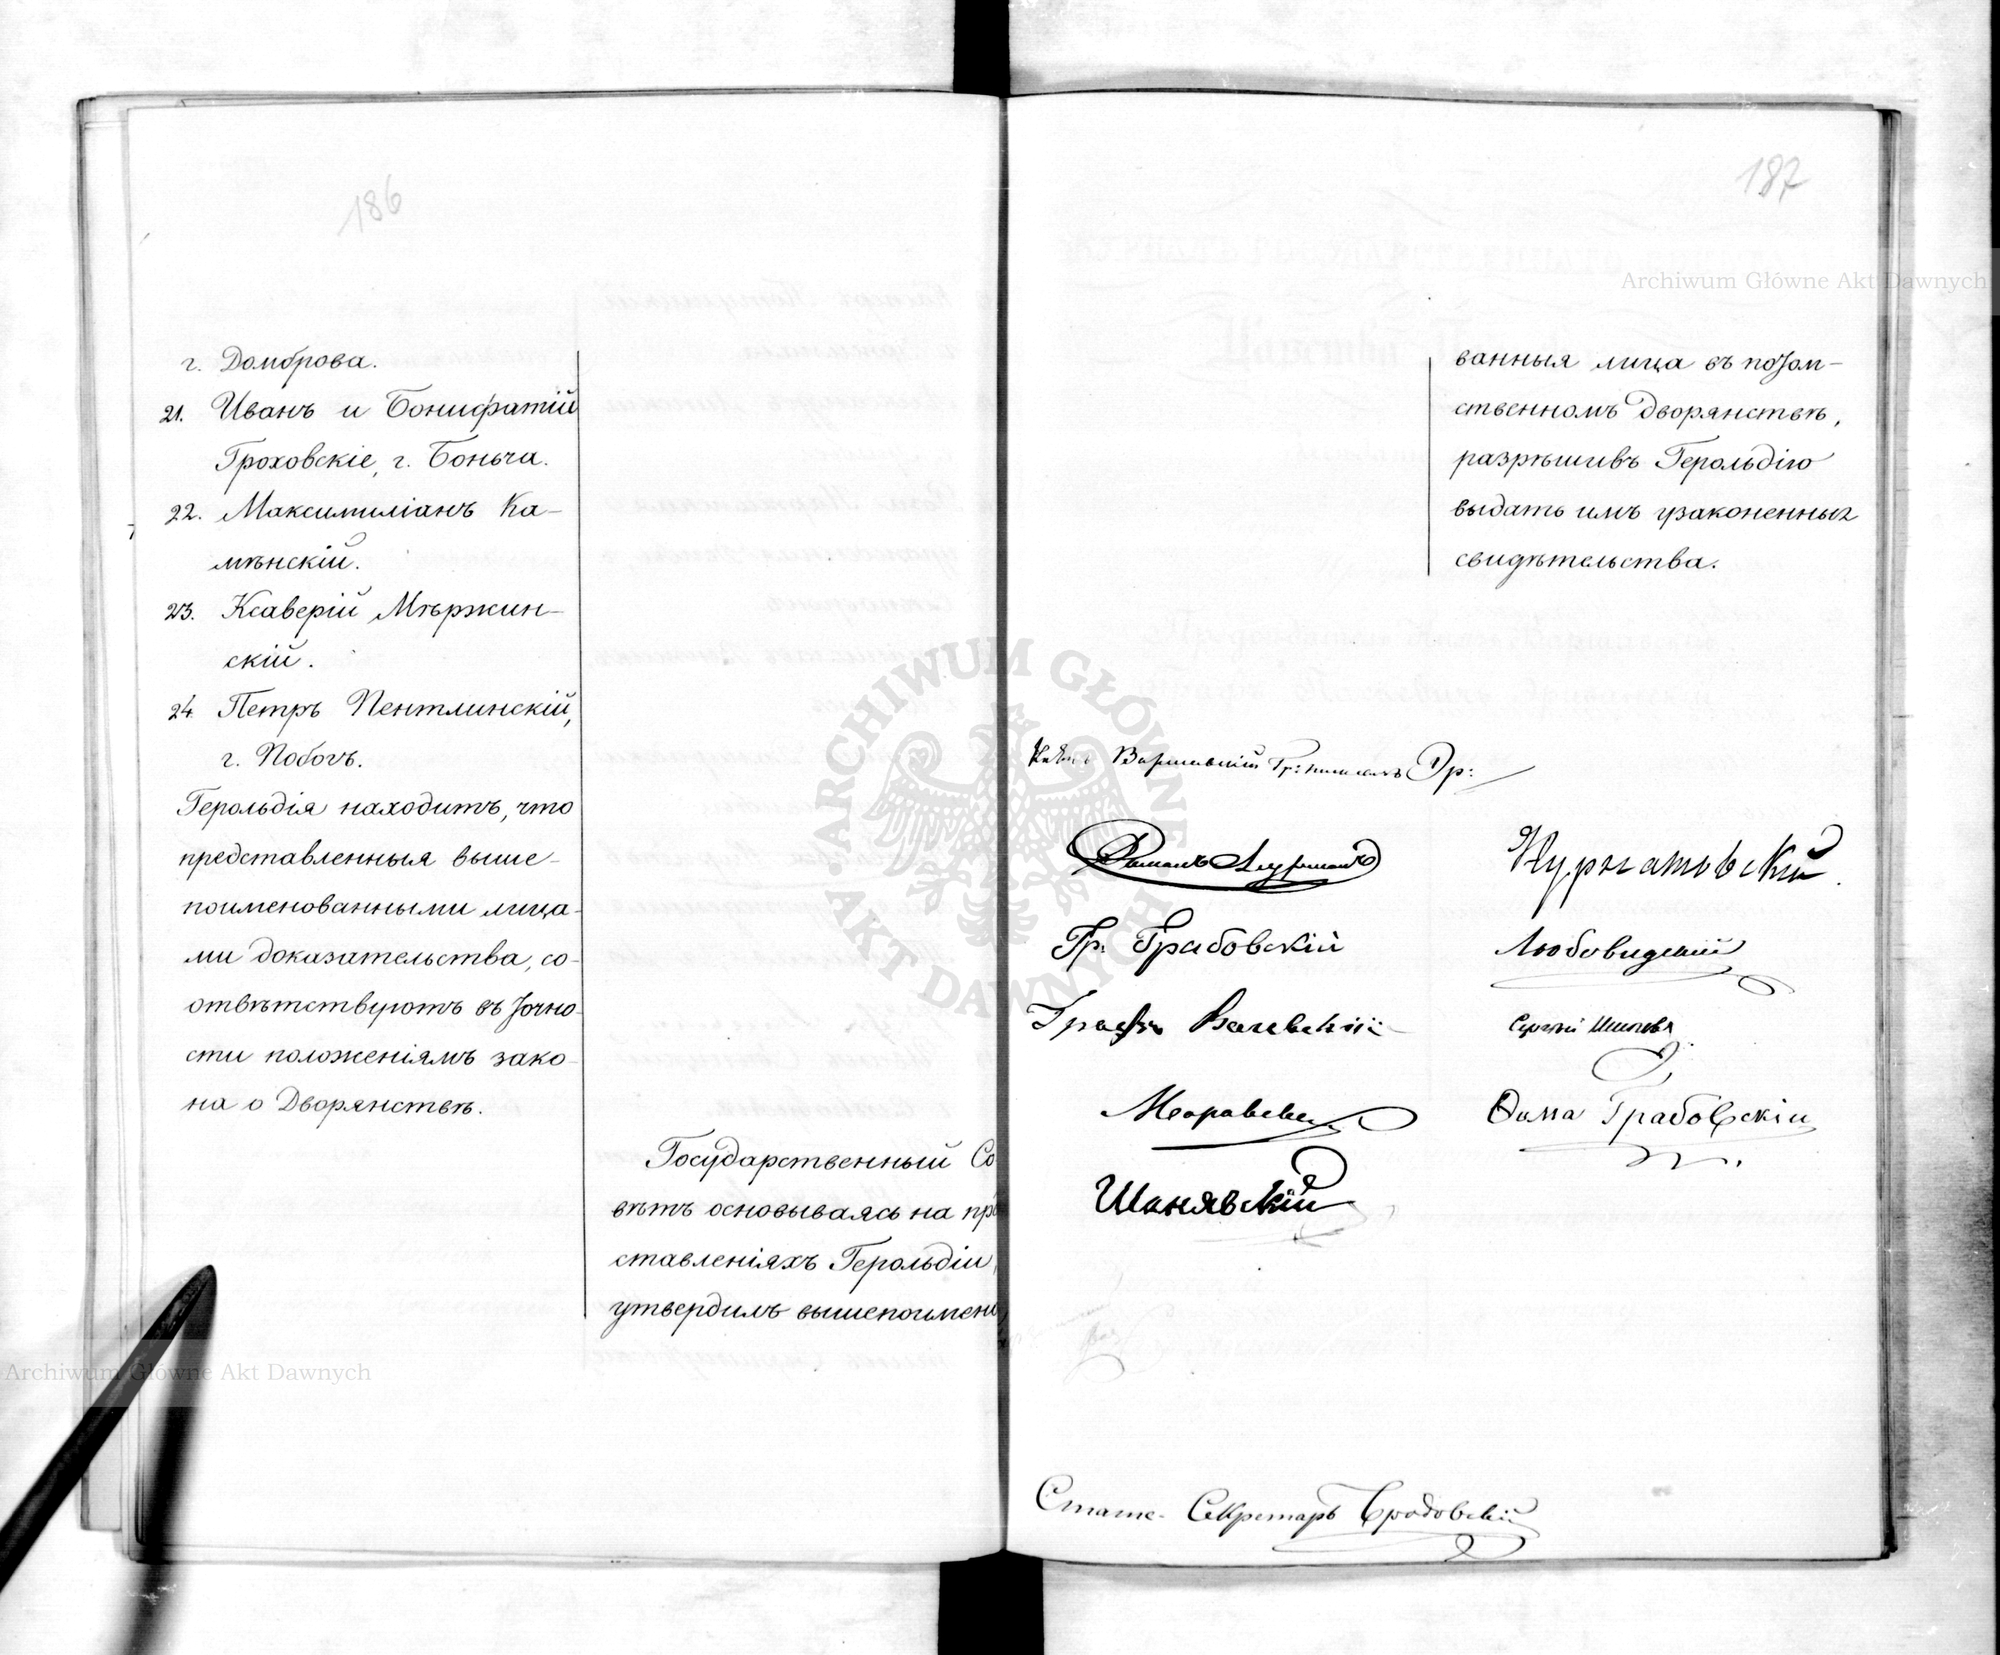 186
г. Домброва.
21. Иванъ и Бонифатій
Гроховскіе, г. Боньча.
22. Максимиліанъ Ка-
мѣнскій.
23. Ксаверій Мѣржин-
скій.
24. Петръ Пентлинскій,
г. Побогъ.
Герольдія находитъ, что
представленныя выше-
поименованными лица-
ми доказательства, со-
отвѣтствуютъ въ точно-
сти положеніямъ зако-
на о Дворянствѣ.
Государственный Со
вѣтъ основываясь на пре
ставленіяхъ Герольдіи,
утвердилъ вышепоимено
187
ванныя лица въ потом-
ственномъ Дворянствѣ,
разрѣшивъ Герольдію
выдать имъ узаконенныя
свидѣтельства.
Варшавскій Гр:
Гр: Грабовскій
Любовидскій
Графъ
Сергѣй Шиповъ
Ѳома Грабовскій
Шанявскій
Статс-Секретарь Бродовскій
Archiwum Główne Akt Dawnych
Archiwum Główne Akt Dawnych
ARCHIWUM GŁÓWNE
AKT DAWNYCH